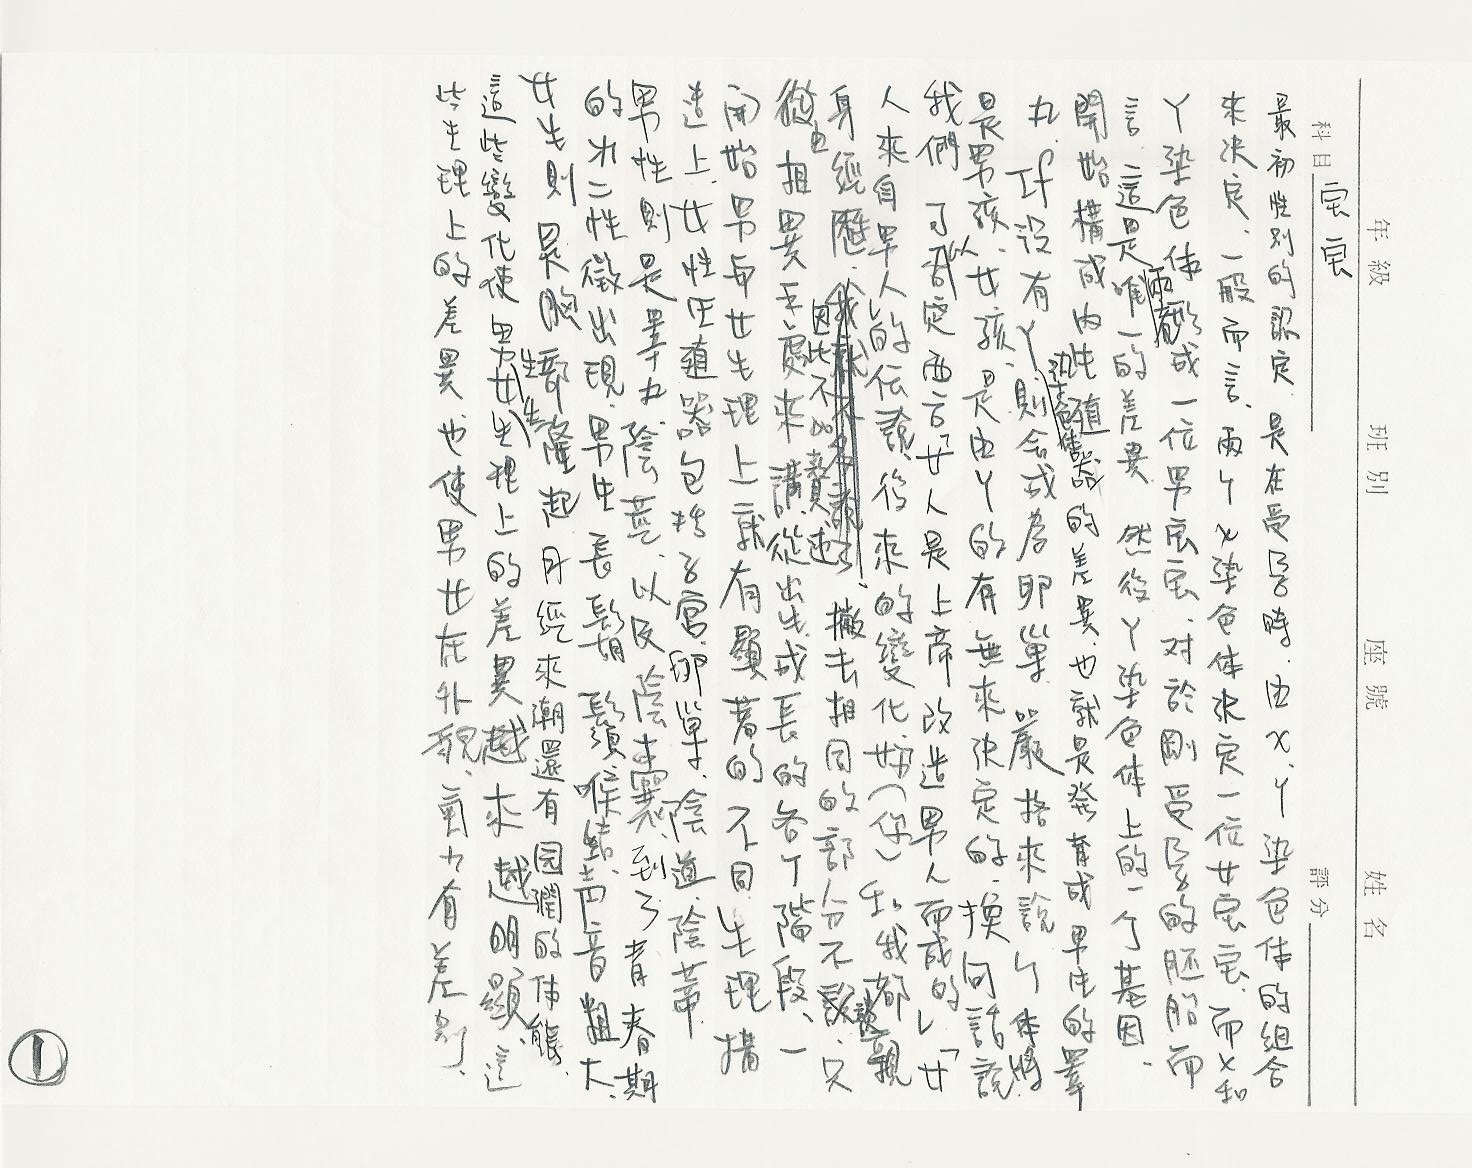 年級　班別　座號　姓名
科目 宝宝　評分
最初性別的認定 是在受孕時．由X．Y染色体的組合
來決定．一般而言．兩个X染色体決定一位女宝宝．而X和
Y染色体形成一位男宝宝．对於剛受孕的胚胎而
言 這是唯一的差異 然後Y染色体上的一个基因．
開始構成內生殖器的差異．也就是発育成男生的睪
丸．If 沒有Y．則会成為卵巢 嚴格來說 Y体將
是男孩．女孩．是由Y的有無來決定的．換句話說
我們可否定西方「女人是上帝改造男人而成的」「女
人來自男人」的伝說．後來的變化妳(你)和我都親
身經歷．因此不如贅述了．撇去相同的部分不談．只
從相異之處來講 從出生成長的各个階段、一
開始男与女生理上就有顯著的不同 生理構
造上．女性生殖器包括子宮．卵巢．陰道．陰蒂
男性則是睪丸 陰莖．以及陰囊．到了青春期
的第二性徵出現．男生 長鬍 鬚．喉結．声音粗大．
女生則是胸部隆起 月經來潮還有圆潤的体態．
這些變化使男女生理上的差異越來越明顯．這
些生理上的差異也使男女在外貌、氣力有差別．
1